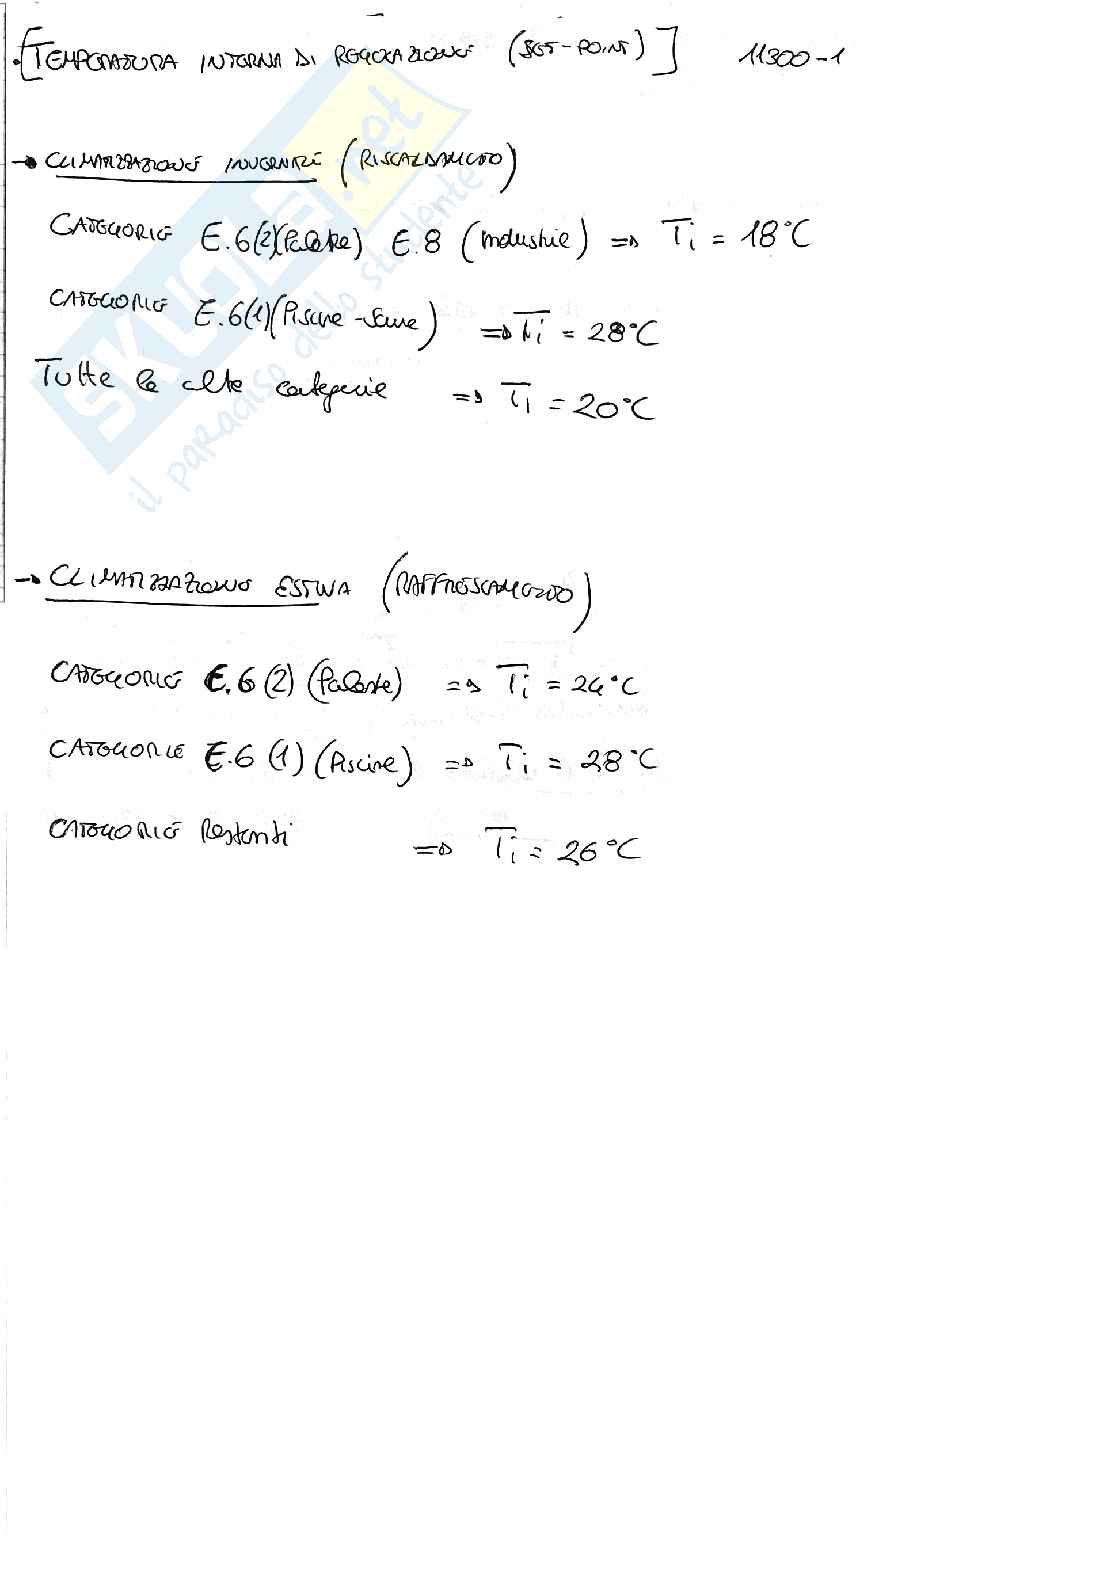 [TEMPERATURA INTERNA DI REGOLAZIONE (SET-POINT)] 11300-1
→ CLIMATIZZAZIONE INVERNALE (RISCALDAMENTO)
CATEGORIE E.6(2)(Palestre) E.8 (Industrie) ⇒ Ti = 18°C
CATEGORIE E.6(1)(Piscine - Saune) ⇒ Ti = 28°C
Tutte le altre categorie ⇒ Ti = 20°C
→ CLIMATIZZAZIONE ESTIVA (RAFFRESCAMENTO)
CATEGORIE E.6(2) (Palestre) ⇒ Ti = 24°C
CATEGORIE E.6(1) (Piscine) ⇒ Ti = 28°C
CATEGORIE Restanti ⇒ Ti = 26°C
SKUOLA.net
il paradiso dello studente